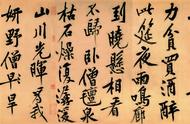 力貧買酒醉
此筵夜雨鳴廊
到曉懸相看
不歸臥僧氈泉
枯石燥復潺湲
山川光暉為我
妍野僧早